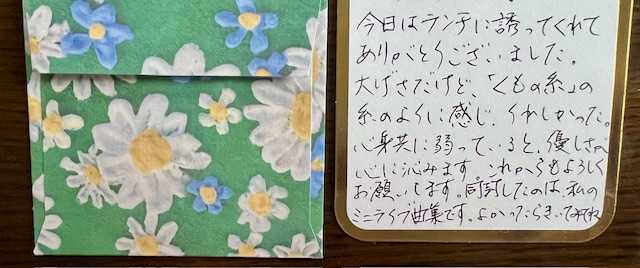 今日はランチに誘ってくれて
ありがとうございました。
大げさだけど、「くもの糸」の
糸のように感じ、うれしかった。
心身共に弱っていると、優しさが
心に沁みます。これからもよろしく
お願いします。同封したのは、私の
ミニライブ曲集です。よかったらきいてみてね